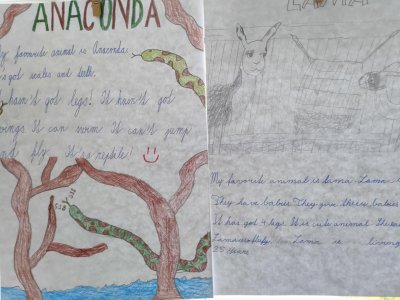 ANACONDA
My favourite animal is Anaconda.
It's got scales and teeth.
It hasn't got legs! It hasn't got
wings. It can swim. It can't jump
and fly. It's a reptile!
LAMA
My favourite animal is lama. Lama
They have babies. They give theirs babies
It has got 4 legs. It is cute animal.
Lama is living
25 years